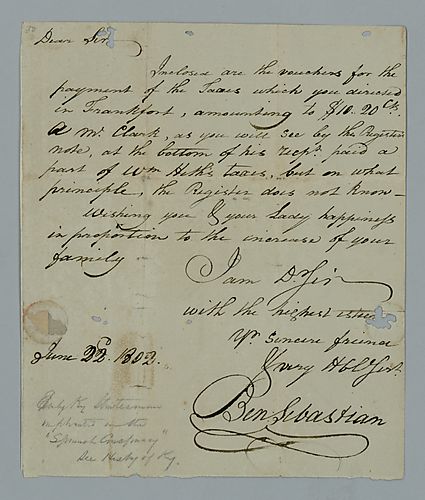 Dear Sir
Inclosed are the vouchers for the
payment of the Taxes which you directed
in Frankfort, amounting to $10.20 Cts.
A Mr. Clark, as you will see by the Registers
note, at the bottom of his recpt. paid a
part of Wm Heth's taxes, but on what
principle, the Register does not know—
Wishing you & your Lady happiness
in proportion to the increase of your
family
I am Dr. Sir
with the highest esteem
Yr. Sincere friend
& very Hble Sert.
Ben Sebastian
June 22d. 1802.
Early Ky Statesman
implicated in the
"Spanish Conspiracy"
See History of Ky.